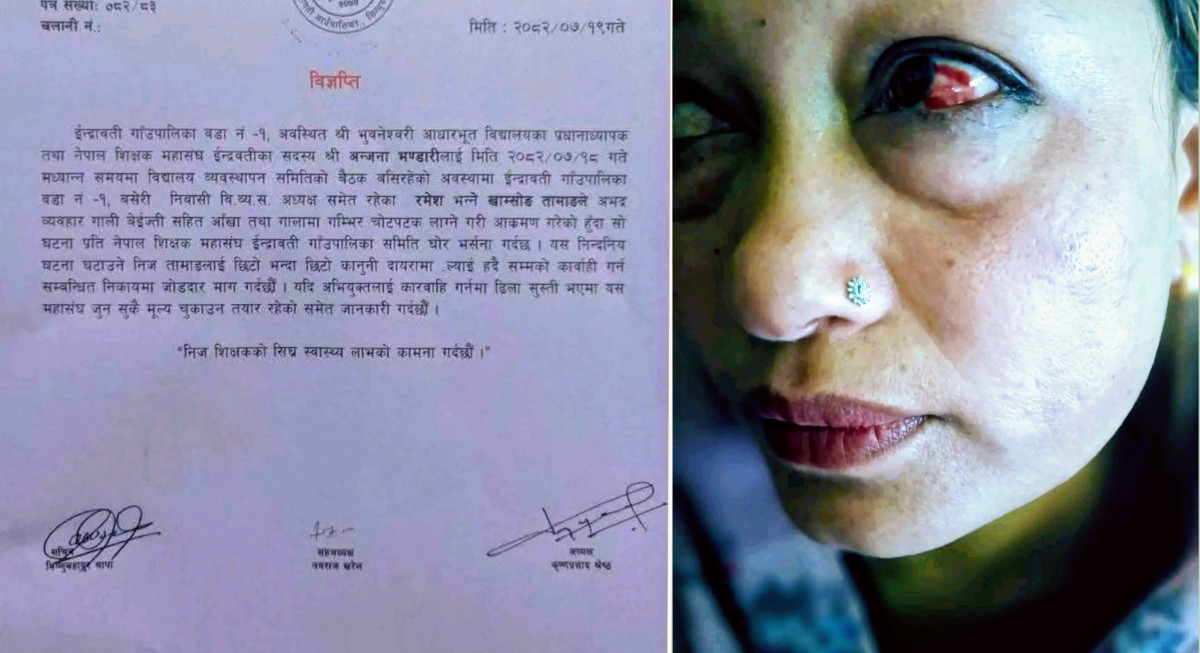 पत्र संख्याः ०८२/८३
चलानी नं.:
२०७४
मिति : २०८२/०७/१९गते
विज्ञप्ति
ईन्द्रावती गाँउपालिका वडा नं -१, अवस्थित श्री भुवनेश्वरी आधारभूत विद्यालयका प्रधानाध्यापक
तथा नेपाल शिक्षक महासंघ ईन्द्रवतीका सदस्य श्री अन्जना भण्डारीलाई मिति २०८२/०७/१८ गते
मध्यान्न समयमा विद्यालय व्यवस्थापन समितिको बैठक बसिरहेको अवस्थामा ईन्द्रावती गाँउपालिका
वडा नं -१, बसेरी निवासी वि.व्य.स. अध्यक्ष समेत रहेका रमेश भन्ने खाम्सोङ तामाङले अभद्र
व्यवहार गाली बेईज्ती सहित आँखा तथा गालामा गम्भिर चोटपटक लाग्ने गरी आक्रमण गरेको हुँदा सो
घटना प्रति नेपाल शिक्षक महासंघ ईन्द्रावती गाँउपालिका समिति घोर भर्सना गर्दछ । यस निन्दनिय
घटना घटाउने निज तामाङलाई छिटो भन्दा छिटो कानुनी दायरामा ल्याई हदै सम्मको कार्वाही गर्न
सम्बन्धित निकायमा जोडदार माग गर्दछौं । यदि अभियुक्तलाई कारवाहि गर्नमा ढिला सुस्ती भएमा यस
महासंघ जुन सुकै मूल्य चुकाउन तयार रहेको समेत जानकारी गर्दछौं ।
"निज शिक्षकको सिघ्र स्वास्थ्य लाभको कामना गर्दछौं ।"
सचिव
विष्णुबहादुर थापा
सहअध्यक्ष
नवराज खरेल
अध्यक्ष
कृष्णप्रसाद श्रेष्ठ